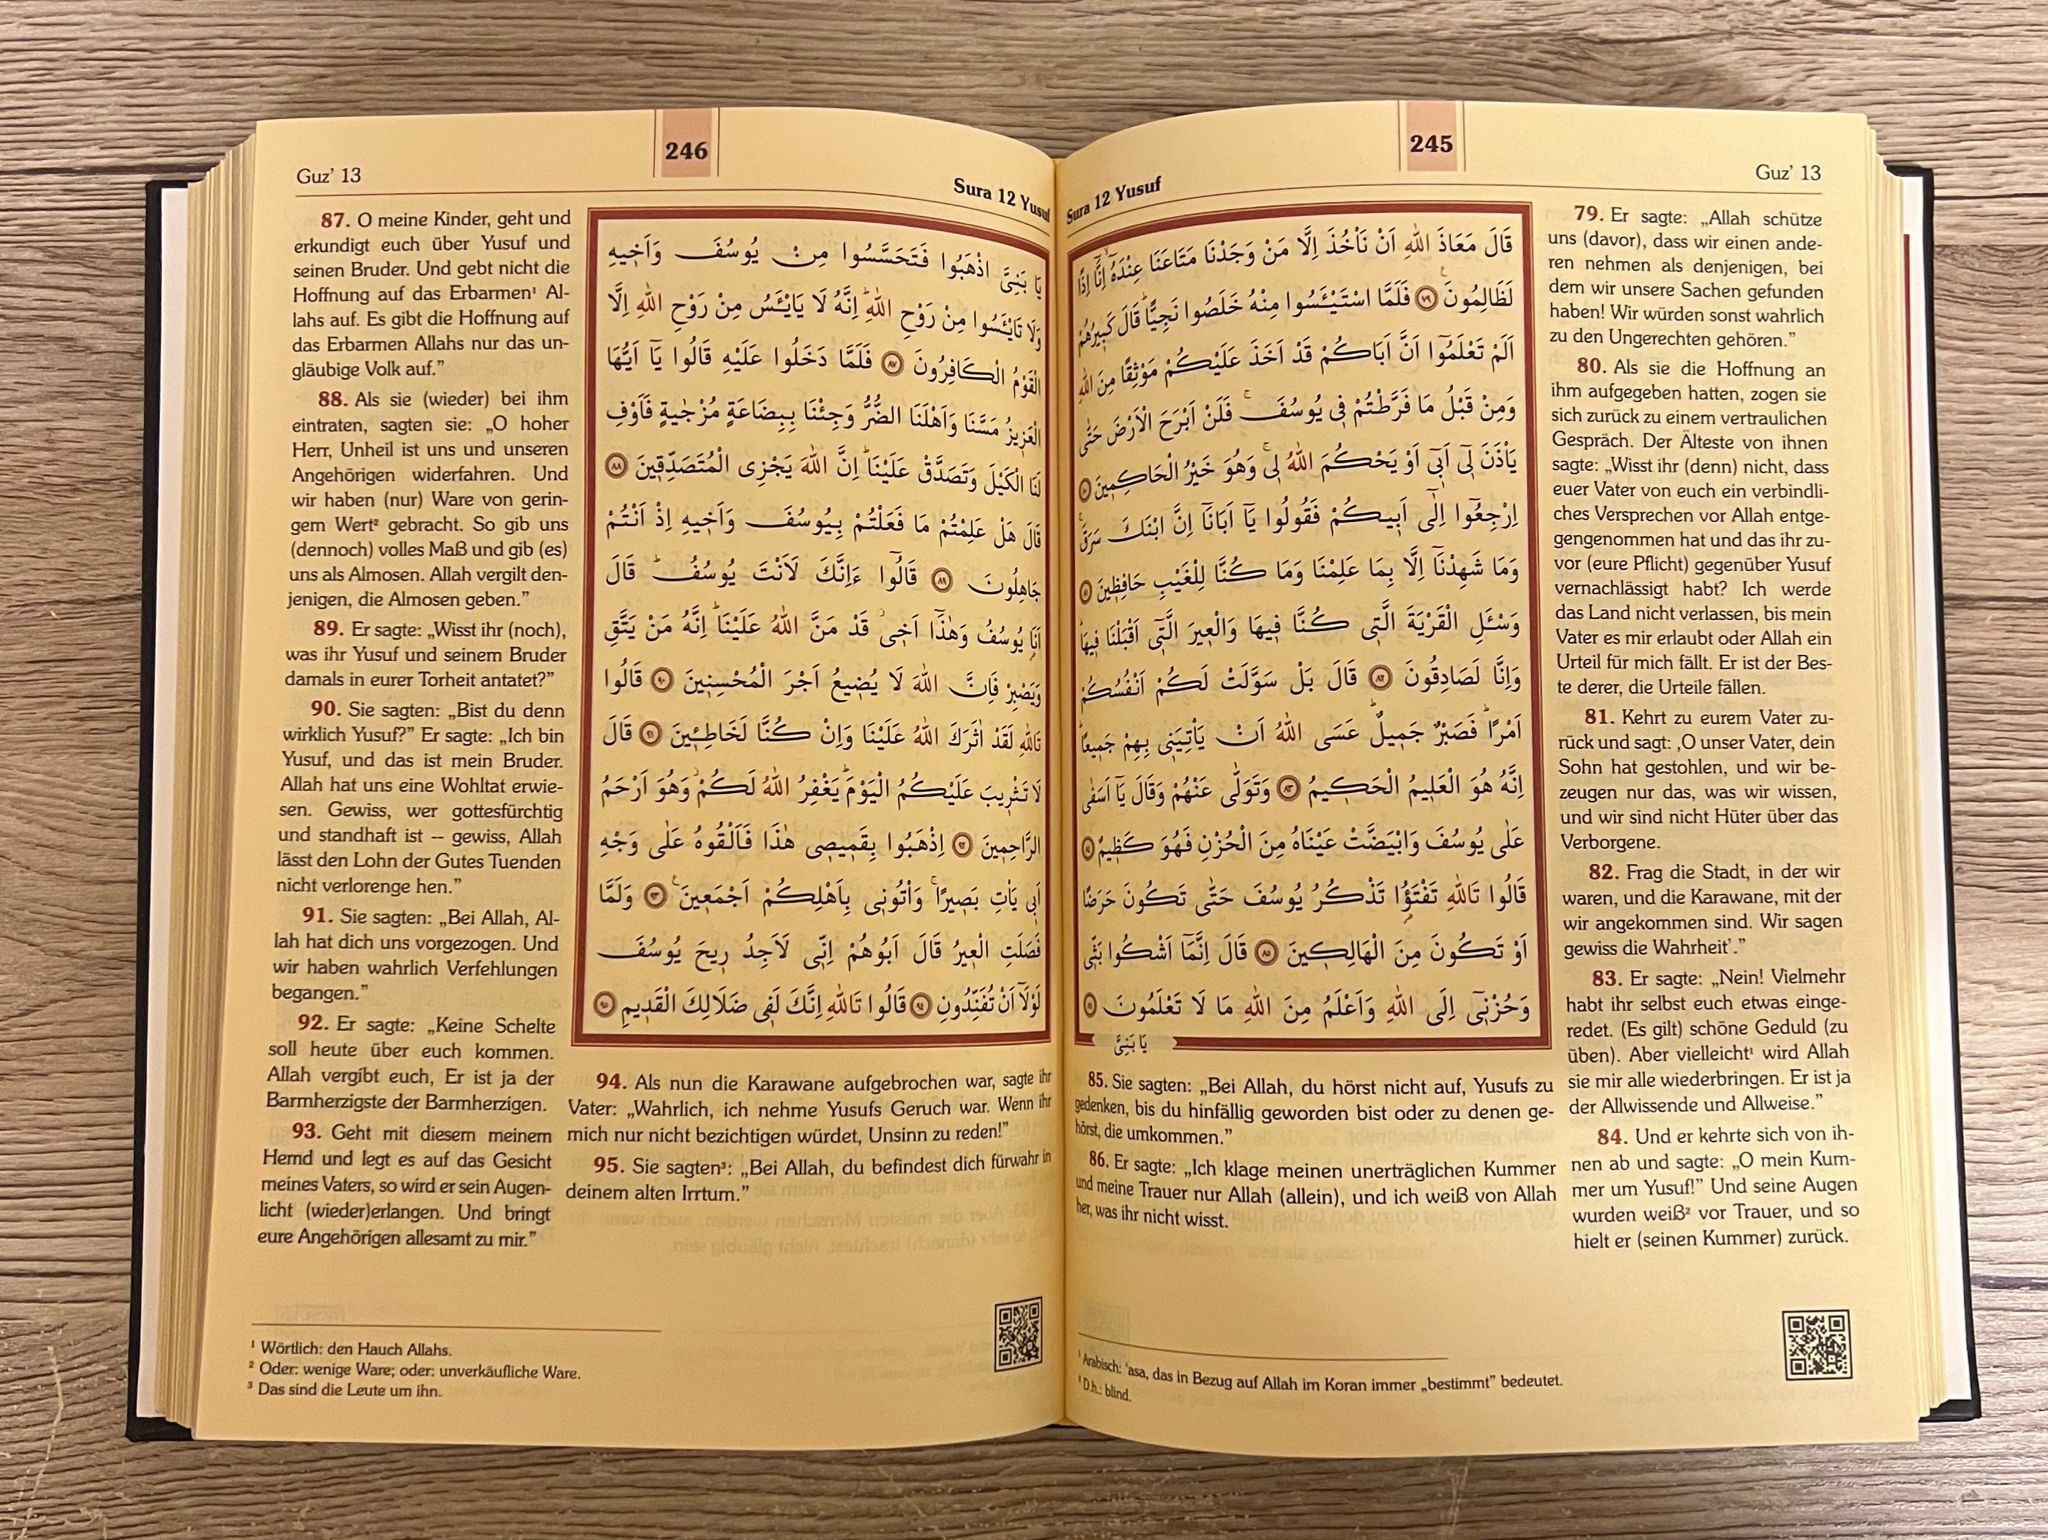 245
Guz’ 13
Sura 12 Yusuf
قَالَ مَعَاذَ اللّٰهِ اَنْ نَأْخُذَ اِلَّا مَنْ وَجَدْنَا مَتَاعَنَا عِنْدَهُٓ اِنَّٓا اِذًا
لَظَالِمُونَ ۟ ﴿٧٩﴾ فَلَمَّا اسْتَيْـَٔسُوا مِنْهُ خَلَصُوا نَجِيًّاۜ قَالَ كَب۪يرُهُمْ
اَلَمْ تَعْلَمُٓوا اَنَّ اَبَاكُمْ قَدْ اَخَذَ عَلَيْكُمْ مَوْثِقًا مِنَ اللّٰهِ
وَمِنْ قَبْلُ مَا فَرَّطْتُمْ ف۪ي يُوسُفَۚ فَلَنْ اَبْرَحَ الْاَرْضَ حَتّٰى
يَأْذَنَ ل۪ٓي اَب۪ٓي اَوْ يَحْكُمَ اللّٰهُ ل۪يۚ وَهُوَ خَيْرُ الْحَاكِم۪ينَ ﴿٨٠﴾
اِرْجِعُٓوا اِلٰٓى اَب۪يكُمْ فَقُولُوا يَٓا اَبَانَٓا اِنَّ ابْنَكَ سَرَقَۚ
وَمَا شَهِدْنَٓا اِلَّا بِمَا عَلِمْنَا وَمَا كُنَّا لِلْغَيْبِ حَافِظ۪ينَ ﴿٨١﴾
وَسْـَٔلِ الْقَرْيَةَ الَّت۪ي كُنَّا ف۪يهَا وَالْع۪يرَ الَّت۪ٓي اَقْبَلْنَا ف۪يهَاۜ
وَاِنَّا لَصَادِقُونَ ﴿٨٢﴾ قَالَ بَلْ سَوَّلَتْ لَكُمْ اَنْفُسُكُمْ
اَمْرًاۜ فَصَبْرٌ جَم۪يلٌۜ عَسَى اللّٰهُ اَنْ يَأْتِيَن۪ي بِهِمْ جَم۪يعًاۜ
اِنَّهُ هُوَ الْعَل۪يمُ الْحَك۪يمُ ﴿٨٣﴾ وَتَوَلّٰى عَنْهُمْ وَقَالَ يَٓا اَسَفٰى
عَلٰى يُوسُفَ وَابْيَضَّتْ عَيْنَاهُ مِنَ الْحُزْنِ فَهُوَ كَظ۪يمٌ ﴿٨٤﴾
قَالُوا تَاللّٰهِ تَفْتَؤُ۬ا تَذْكُرُ يُوسُفَ حَتّٰى تَكُونَ حَرَضًا
اَوْ تَكُونَ مِنَ الْهَالِك۪ينَ ﴿٨٥﴾ قَالَ اِنَّمَٓا اَشْكُوا بَثّ۪ي
وَحُزْن۪ٓي اِلَى اللّٰهِ وَاَعْلَمُ مِنَ اللّٰهِ مَا لَا تَعْلَمُونَ ﴿٨٦﴾
يَا بَنِيَّ
79. Er sagte: „Allah schütze
uns (davor), dass wir einen ande-
ren nehmen als denjenigen, bei
dem wir unsere Sachen gefunden
haben! Wir würden sonst wahrlich
zu den Ungerechten gehören.”
80. Als sie die Hoffnung an
ihm aufgegeben hatten, zogen sie
sich zurück zu einem vertraulichen
Gespräch. Der Älteste von ihnen
sagte: „Wisst ihr (denn) nicht, dass
euer Vater von euch ein verbindli-
ches Versprechen vor Allah entge-
gengenommen hat und das ihr zu-
vor (eure Pflicht) gegenüber Yusuf
vernachlässigt habt? Ich werde
das Land nicht verlassen, bis mein
Vater es mir erlaubt oder Allah ein
Urteil für mich fällt. Er ist der Bes-
te derer, die Urteile fällen.
81. Kehrt zu eurem Vater zu-
rück und sagt: ‚O unser Vater, dein
Sohn hat gestohlen, und wir be-
zeugen nur das, was wir wissen,
und wir sind nicht Hüter über das
Verborgene.
82. Frag die Stadt, in der wir
waren, und die Karawane, mit der
wir angekommen sind. Wir sagen
gewiss die Wahrheit’.”
83. Er sagte: „Nein! Vielmehr
habt ihr selbst euch etwas einge-
redet. (Es gilt) schöne Geduld (zu
üben). Aber vielleicht¹ wird Allah
sie mir alle wiederbringen. Er ist ja
der Allwissende und Allweise.”
84. Und er kehrte sich von ih-
nen ab und sagte: „O mein Kum-
mer um Yusuf!” Und seine Augen
wurden weiß² vor Trauer, und so
hielt er (seinen Kummer) zurück.
85. Sie sagten: „Bei Allah, du hörst nicht auf, Yusufs zu
gedenken, bis du hinfällig geworden bist oder zu denen ge-
hörst, die umkommen.”
86. Er sagte: „Ich klage meinen unerträglichen Kummer
und meine Trauer nur Allah (allein), und ich weiß von Allah
her, was ihr nicht wisst.
¹ Arabisch: ‘asa, das in Bezug auf Allah im Koran immer „bestimmt” bedeutet.
D.h.: blind.
246
Guz’ 13
Sura 12 Yusuf
يَا بَنِيَّ اذْهَبُوا فَتَحَسَّسُوا مِنْ يُوسُفَ وَاَخ۪يهِ
وَلَا تَايْـَٔسُوا مِنْ رَوْحِ اللّٰهِۜ اِنَّهُ لَا يَايْـَٔسُ مِنْ رَوْحِ اللّٰهِ اِلَّا
الْقَوْمُ الْكَافِرُونَ ﴿٨٧﴾ فَلَمَّا دَخَلُوا عَلَيْهِ قَالُوا يَٓا اَيُّهَا
الْعَز۪يزُ مَسَّنَا وَاَهْلَنَا الضُّرُّ وَجِئْنَا بِبِضَاعَةٍ مُزْجٰيةٍ فَاَوْفِ
لَنَا الْكَيْلَ وَتَصَدَّقْ عَلَيْنَاۜ اِنَّ اللّٰهَ يَجْزِي الْمُتَصَدِّق۪ينَ ﴿٨٨﴾
قَالَ هَلْ عَلِمْتُمْ مَا فَعَلْتُمْ بِيُوسُفَ وَاَخ۪يهِ اِذْ اَنْتُمْ
جَاهِلُونَ ﴿٨٩﴾ قَالُٓوا ءَاِنَّكَ لَاَنْتَ يُوسُفُۜ قَالَ
اَنَا۬ يُوسُفُ وَهٰذَٓا اَخ۪يۘ قَدْ مَنَّ اللّٰهُ عَلَيْنَاۜ اِنَّهُ مَنْ يَتَّقِ
وَيَصْبِرْ فَاِنَّ اللّٰهَ لَا يُض۪يعُ اَجْرَ الْمُحْسِن۪ينَ ﴿٩٠﴾ قَالُوا
تَاللّٰهِ لَقَدْ اٰثَرَكَ اللّٰهُ عَلَيْنَا وَاِنْ كُنَّا لَخَاطِـ۪ٔينَ ﴿٩١﴾ قَالَ
لَا تَثْر۪يبَ عَلَيْكُمُ الْيَوْمَۜ يَغْفِرُ اللّٰهُ لَكُمْۘ وَهُوَ اَرْحَمُ
الرَّاحِم۪ينَ ﴿٩٢﴾ اِذْهَبُوا بِقَم۪يص۪ي هٰذَا فَاَلْقُوهُ عَلٰى وَجْهِ
اَب۪ي يَأْتِ بَص۪يرًاۚ وَأْتُون۪ي بِاَهْلِكُمْ اَجْمَع۪ينَ۟ ﴿٩٣﴾ وَلَمَّا
فَصَلَتِ الْع۪يرُ قَالَ اَبُوهُمْ اِنّ۪ي لَاَجِدُ ر۪يحَ يُوسُفَ
لَوْلَٓا اَنْ تُفَنِّدُونِ ﴿٩٤﴾ قَالُوا تَاللّٰهِ اِنَّكَ لَف۪ي ضَلَالِكَ الْقَد۪يمِ ﴿٩٥﴾
87. O meine Kinder, geht und
erkundigt euch über Yusuf und
seinen Bruder. Und gebt nicht die
Hoffnung auf das Erbarmen¹ Al-
lahs auf. Es gibt die Hoffnung auf
das Erbarmen Allahs nur das un-
gläubige Volk auf.”
88. Als sie (wieder) bei ihm
eintraten, sagten sie: „O hoher
Herr, Unheil ist uns und unseren
Angehörigen widerfahren. Und
wir haben (nur) Ware von gerin-
gem Wert² gebracht. So gib uns
(dennoch) volles Maß und gib (es)
uns als Almosen. Allah vergilt den-
jenigen, die Almosen geben.”
89. Er sagte: „Wisst ihr (noch),
was ihr Yusuf und seinem Bruder
damals in eurer Torheit antatet?”
90. Sie sagten: „Bist du denn
wirklich Yusuf?” Er sagte: „Ich bin
Yusuf, und das ist mein Bruder.
Allah hat uns eine Wohltat erwie-
sen. Gewiss, wer gottesfürchtig
und standhaft ist -- gewiss, Allah
lässt den Lohn der Gutes Tuenden
nicht verlorenge hen.”
91. Sie sagten: „Bei Allah, Al-
lah hat dich uns vorgezogen. Und
wir haben wahrlich Verfehlungen
begangen.”
92. Er sagte: „Keine Schelte
soll heute über euch kommen.
Allah vergibt euch, Er ist ja der
Barmherzigste der Barmherzigen.
93. Geht mit diesem meinem
Hemd und legt es auf das Gesicht
meines Vaters, so wird er sein Augen-
licht (wieder)erlangen. Und bringt
eure Angehörigen allesamt zu mir.”
94. Als nun die Karawane aufgebrochen war, sagte ihr
Vater: „Wahrlich, ich nehme Yusufs Geruch war. Wenn ihr
mich nur nicht bezichtigen würdet, Unsinn zu reden!”
95. Sie sagten³: „Bei Allah, du befindest dich fürwahr in
deinem alten Irrtum.”
¹ Wörtlich: den Hauch Allahs.
² Oder: wenige Ware; oder: unverkäufliche Ware.
³ Das sind die Leute um ihn.